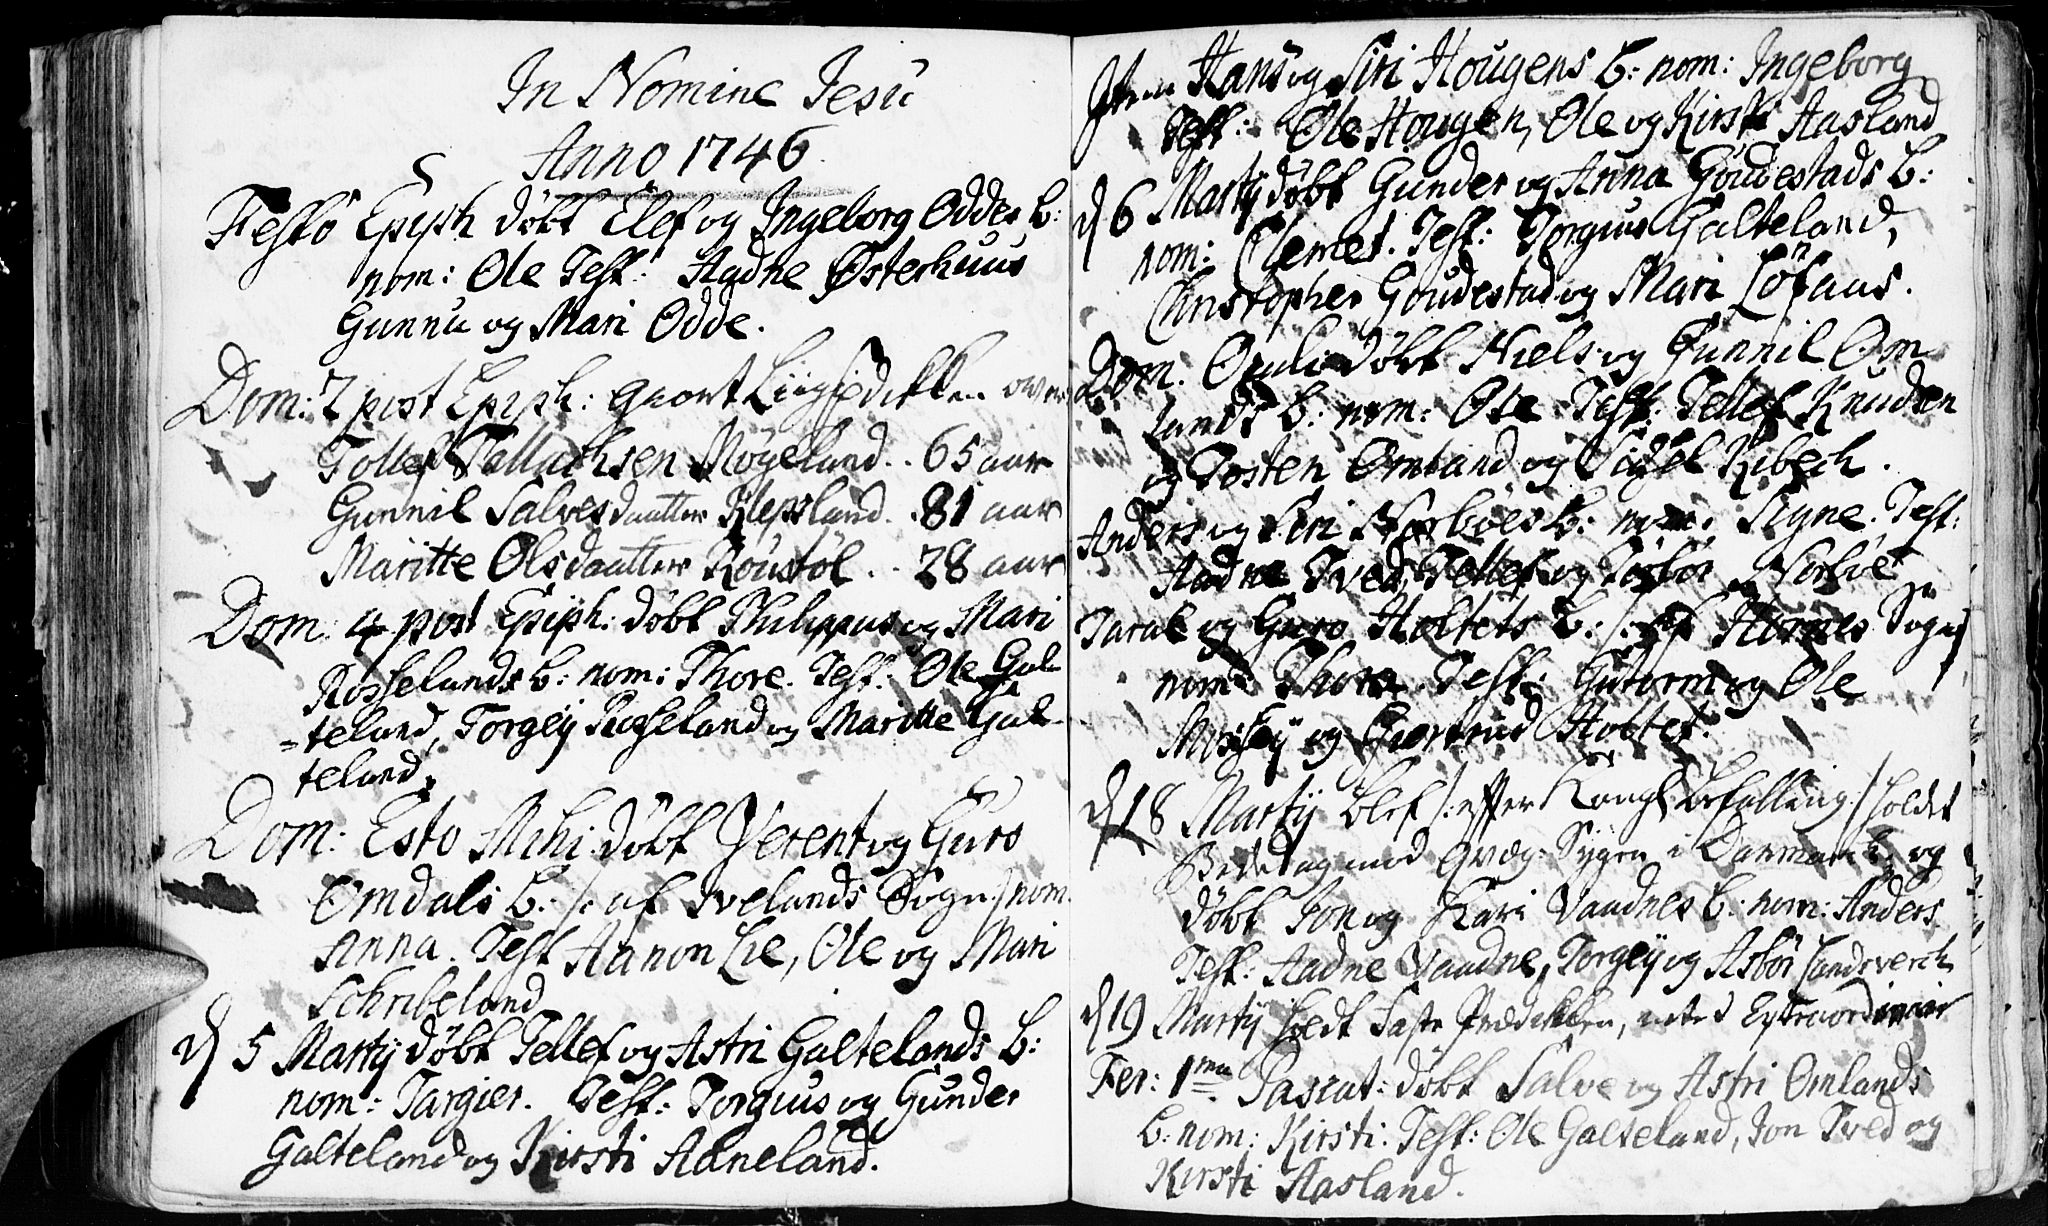 In Nomine Jesu
Anno 1746
Festo Epiph døbt Elef og Ingeborg Oddes b:
nom: Ole Test: Aadne Østerhuus
Gunnu og Mari Odde.
Dom: 2 post Epiph: giort Liigprediken over
Tollef Tallachsen Møgeland .. 65 aar
Gunnil Salvesdaatter Klepsland .. 81 aar
Maritte Olsdaatter Røustøl .. 28 aar
Dom: 4 post Epiph: døbt Philippus og Mari
Rosselands b: nom: Thore. Test: Ole Gal
=teland, Torgeÿ Rosseland og Maritte Gal-
teland.
Dom: Esto Mihi: døbt Berent og Guro
Omdals b: /: af Ivelands Sogn/ nom.
Anna. Test Aanon Lie, Ole og Mari
Schribeland
d 5 Martÿ døbt Tellef og Astri Galtelands b:
nom: Targier. Test: Torgius og Gunder
Galteland og Kirsti Adneland.
Item Hans og Siri Hougens b: nom: Ingeborg
Test: Ole Hougen, Ole og Kirsti Aasland
d 6 Martÿ døbt Gunder og Anna Goudestads b:
nom: Clemet. Test: Torgius Galteland,
Christopher Goudestad og Mari Løfaas.
Dom. Oculi døbt Niels og Gunnil Om
lands b: nom: Ole Test: Tellef Knudsen
og Tosten Omland og Sidsel Kibech.
Anders og Siri Norbøes b: nom: Signe. Test:
Aadne Tved, Tellef og Norbøe
Taral og Guro Holtets b: /: af Hornes Sogn/
nom: Thore. Test: Gutorm og Ole
Moseÿ og Giertrud Holtet.
d 18 Martÿ blef /: effter Kongl: befalling:/ holdet
Bededag mod Qvæg-Sygen i Danmarck, og
døbt Jon og Kari Vaadnes b: nom: Anders
Test: Aadne Vaadne, Torgeÿ og Asbør Landsverch
d 19 Martÿ holdt Faste Prædikken, Extraordinair
Fer: 1ma Pascat: døbt Salve og Astri Omlands
b: nom: Kirsti: Test: Ole Galteland, Jon Tved og
Kirsti Aasland.